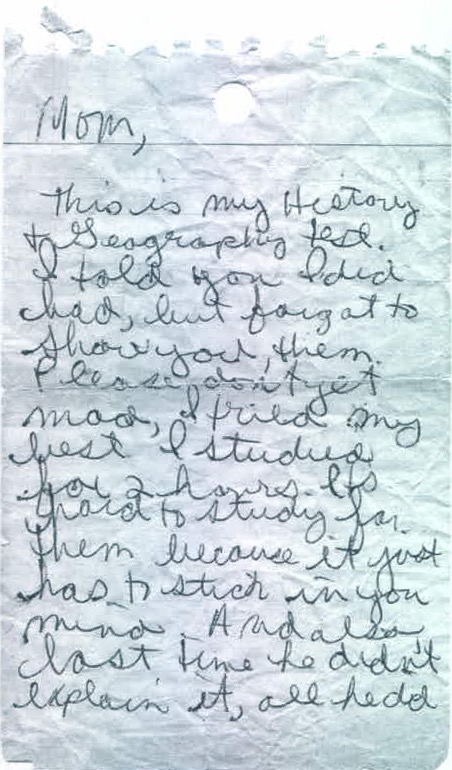 Mom,
This is my History
& Geography test.
I told you I did
bad, but forgot to
show you, them.
Please don't get
mad, I tried my
best I studied
for 2 hours. Its
hard to study for
them because it just
has to stick in you
mind. And also
last time he didn't
explain it, all he did